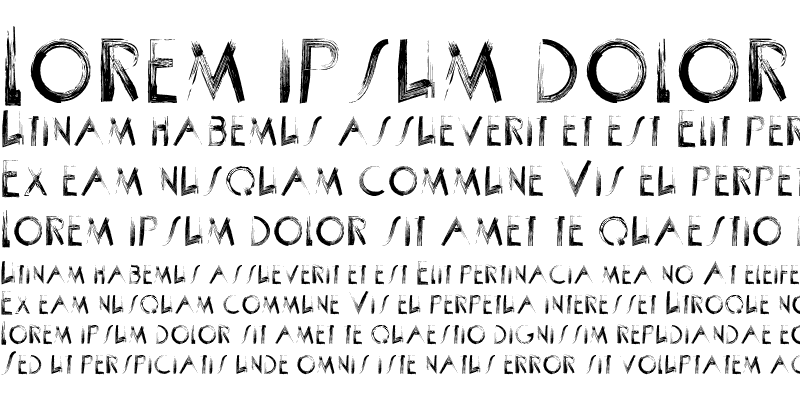 Lorem ipsum dolor
Utinam habemus assueverit et est Elit per
Ex eam nusquam commune Vis eu perpet
Lorem ipsum dolor sit amet te quaestio
Utinam habemus assueverit et est Elit pertinacia mea no At eleife
Ex eam nusquam commune Vis eu perpetua interesset Utroque no
Lorem ipsum dolor sit amet te quaestio dignissim repudiandae eo
Sed ut perspiciatis unde omnis iste natus error sit voluptatem ac